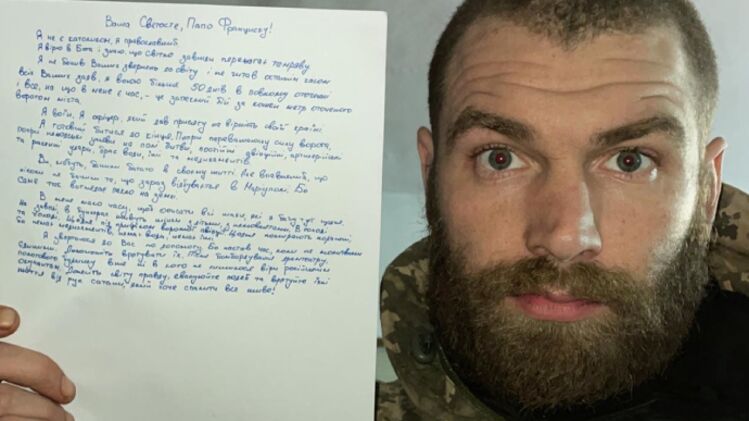 Ваша Святосте, Папо Франциску!
Я не є католиком, я православний.
Я вірю в Бога і знаю, що світло завжди перемагає темряву.
Я не бачив Ваших звернень до світу і не читав останнім часом
всіх Ваших заяв, я воюю більше 50 днів в повному оточенні
і все, на що в мене є час, - це запеклий бій за кожен метр оточеного
ворогом міста.
Я воїн. Я офіцер, який дав присягу на вірність своїй країні.
Я готовий битися до кінця. Попри переважаючу силу ворога,
попри нелюдські умови на полі битви, постійний авіаційний, артилерійські
та ракетні удари, брак води, їжі та медикаментів.
Ви, мабуть, бачили багато в своєму житті. Але впевнений, що
ніколи не бачили те, що зараз відбувається в Маріуполі. Бо
саме так виглядає пекло на землі.
В мене мало часу, щоб описати всі жахи, які я бачу тут щодня.
На заводі в бункерах живуть жінки з дітьми, з немовлятами. В голоді
та холоді. Щодня під прицілом ворожої авіації. Щодня помирають поранені,
бо немає медикаментів, нема води, немає їжі.
Я звертаюся до Вас по допомогу. Бо настав час, коли не молитвами
єдиними. Допоможіть врятувати їх. Після бомбардування драмтеатру,
пологового будинку вже ні в кого не лишилося віри російським
окупантам. Донесіть світу правду, евакуюйте людей та врятуйте їхні
життя від рук сатани, який хоче спалити все живе!